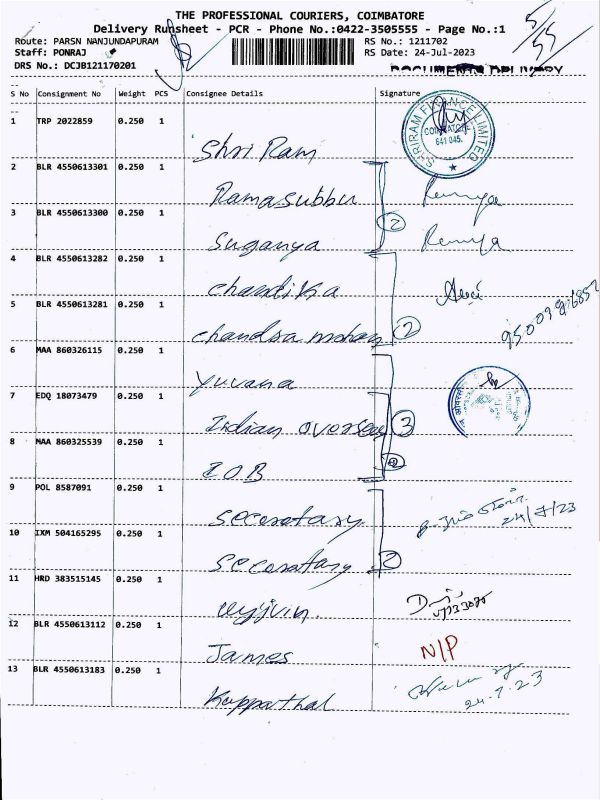 THE PROFESSIONAL COURIERS, COIMBATORE
Delivery Runsheet - PCR - Phone No.:0422-3505555 - Page No.:1
Route: PARSN NANJUNDAPURAM RS No.: 1211702
Staff: PONRAJ RS Date: 24-Jul-2023
DRS No.: DCJB121170201
5/55
S No Consignment No Weight PCS Consignee Details Signature
1 TRP 2022859 0.250 1 Shri Ram
SHRIRAM FINANCE LIMITED
COIMBATORE
641 045.
2 BLR 4550613301 0.250 1 Ramasubbu Ramya
3 BLR 4550613300 0.250 1 Suganya Ramya
2
4 BLR 4550613282 0.250 1 Chandika
5 BLR 4550613281 0.250 1 Chandra mohan
2
6 MAA 860326115 0.250 1 Yuvana
7 EDQ 18073479 0.250 1 Indian overseas
3
8 MAA 860325539 0.250 1 IOB
9 POL 8587091 0.250 1 Secoretary
24/7/23
10 IXM 504165295 0.250 1 Secoretary
2
11 HRD 383515145 0.250 1
12 BLR 4550613112 0.250 1 James N/P
13 BLR 4550613183 0.250 1 Kuppathal
24.7.23